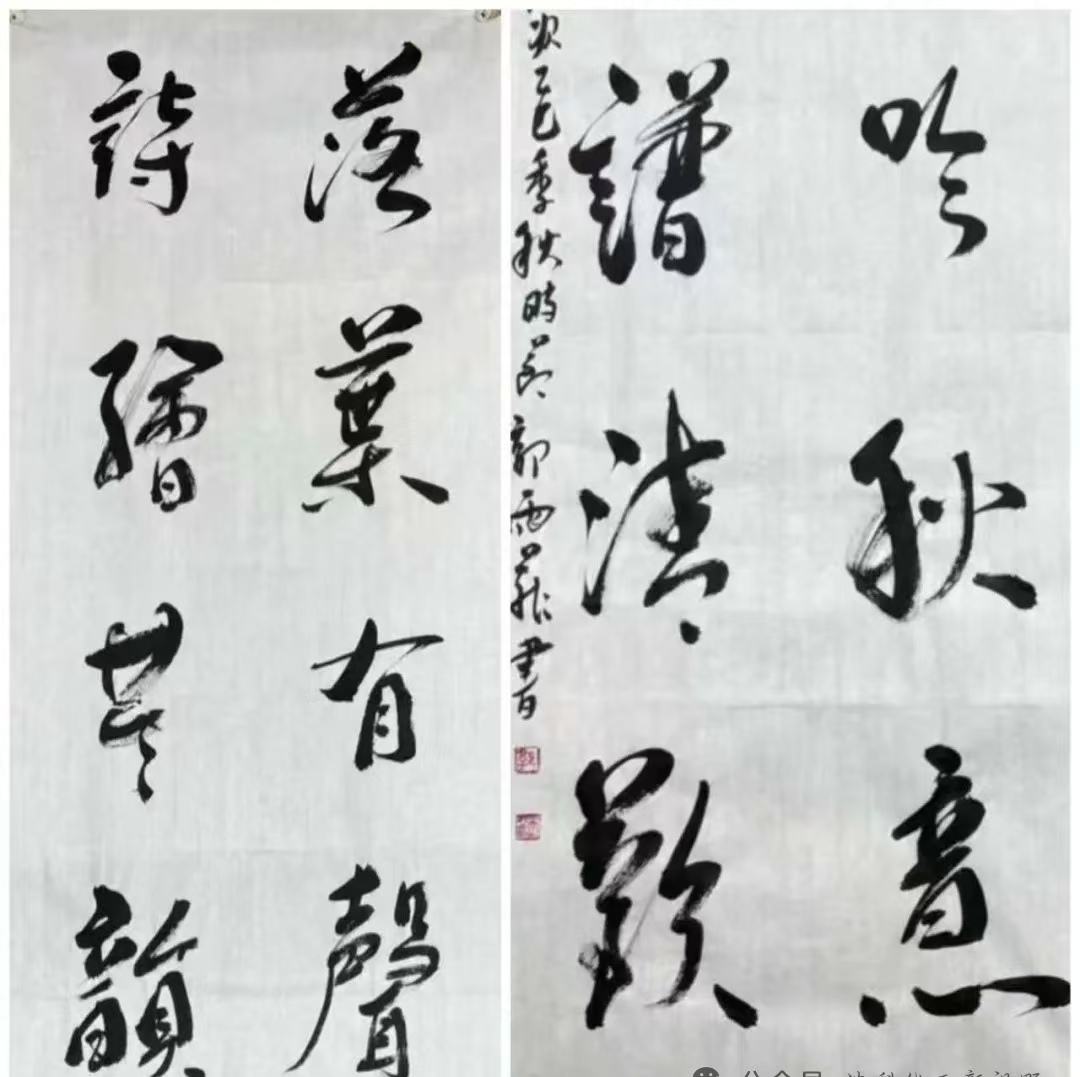 落葉有聲
詩繪韻
吟秋意
譜清歡
乙巳季秋時節郭雨書
公众号